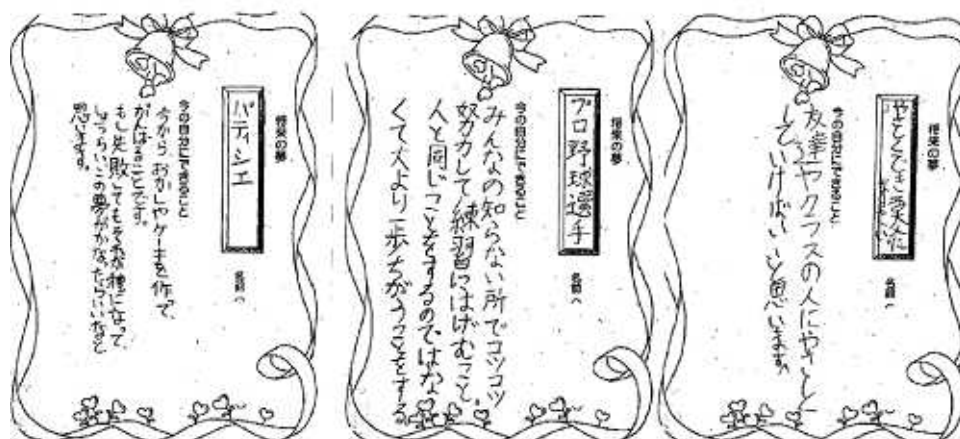 将来の夢
やさしくてできる大人になりたい
名前(
今の自分にできること
友達やクラスの人にやさしく
していけばいいと思います。
将来の夢
プロ野球選手
名前(
今の自分にできること
みんなの知らない所でコツコツ
努力して練習にはげむこと。
人と同じことをするのではな
くて人より一歩ちがうことをする
将来の夢
パティシエ
名前(
今の自分にできること
今からおかしやケーキを作って、
がんばることです。
もし失敗してもそれが種になって
しょうらいこの夢がかなったらいいなと
思います。